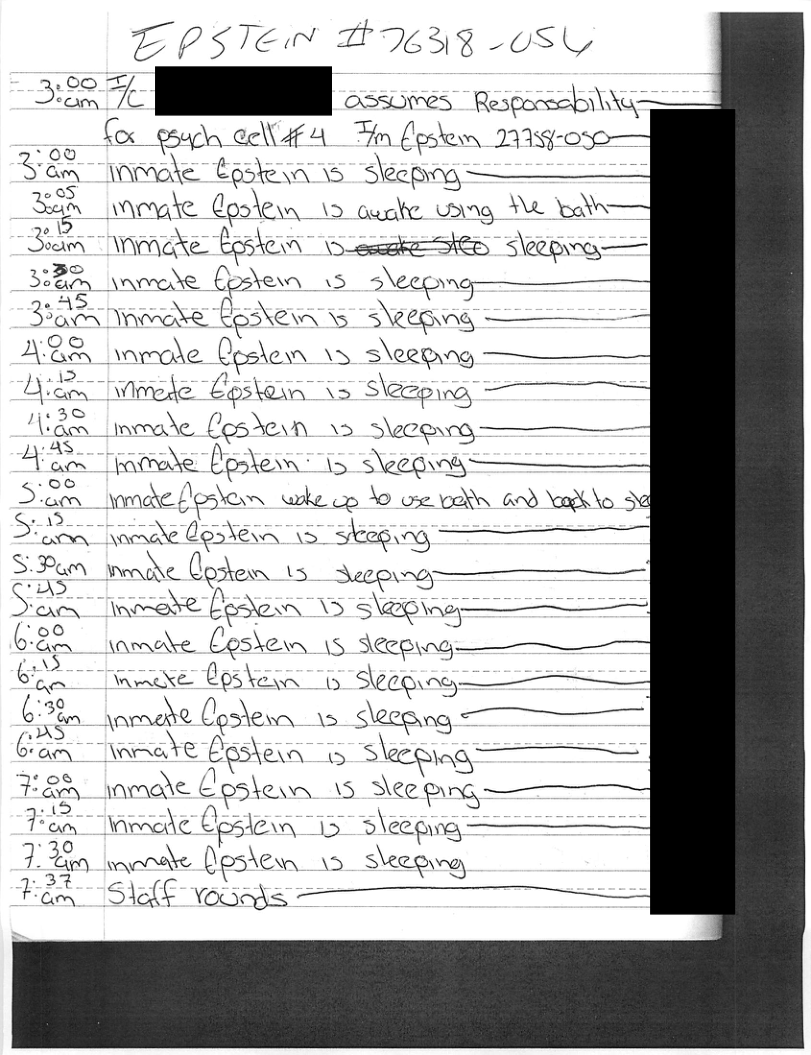 EPSTEIN #76318-054
3:00 am I/C assumes Responsability
for psych cell #4 I/m Epstein 27758-050
3:00 am inmate Epstein is sleeping
3:05 am inmate Epstein is awake using the bath
3:15 am inmate Epstein is sleeping
3:30 am inmate Epstein is sleeping
3:45 am inmate Epstein is sleeping
4:00 am inmate Epstein is sleeping
4:15 am inmate Epstein is sleeping
4:30 am inmate Epstein is sleeping
4:45 am inmate Epstein is sleeping
5:00 am inmate Epstein wake up to use bath and back to slee
5:15 am inmate Epstein is sleeping
5:30 am inmate Epstein is sleeping
5:45 am inmate Epstein is sleeping
6:00 am inmate Epstein is sleeping
6:15 am inmate Epstein is sleeping
6:30 am inmate Epstein is sleeping
6:45 am inmate Epstein is sleeping
7:00 am inmate Epstein is sleeping
7:15 am inmate Epstein is sleeping
7:30 am inmate Epstein is sleeping
7:37 am Staff rounds